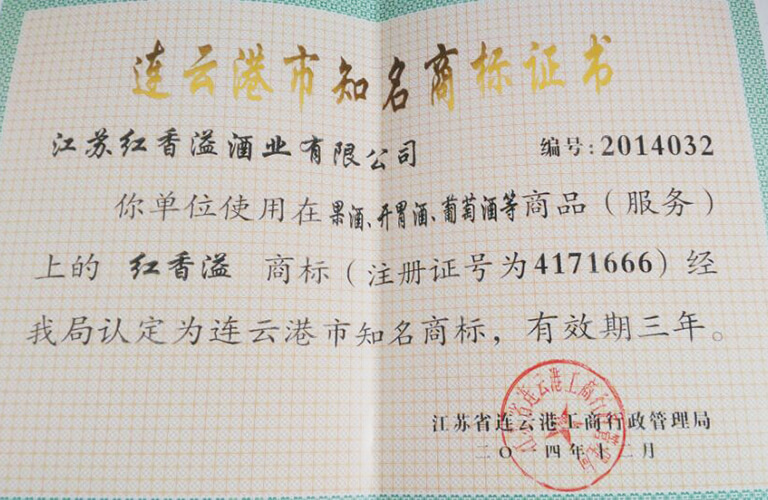 连云港市知名商标证书
江苏红香溢酒业有限公司 编号:2014032
你单位使用在果酒、开胃酒、葡萄酒等商品（服务）
上的 红香溢 商标（注册证号为4171666）经
我局认定为连云港市知名商标，有效期三年。
江苏省连云港工商行政管理局
二〇一四年十二月